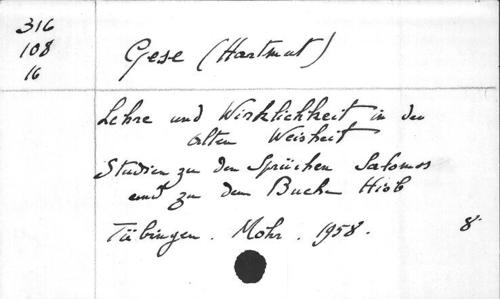 316
108
16
Gese (Hartmut)
Lehre und Wirklichkeit in der
alten Weisheit
Studien zu den Sprüchen Salomos
und zu dem Buche Hiob
Tübingen. Mohr. 1958. 8°